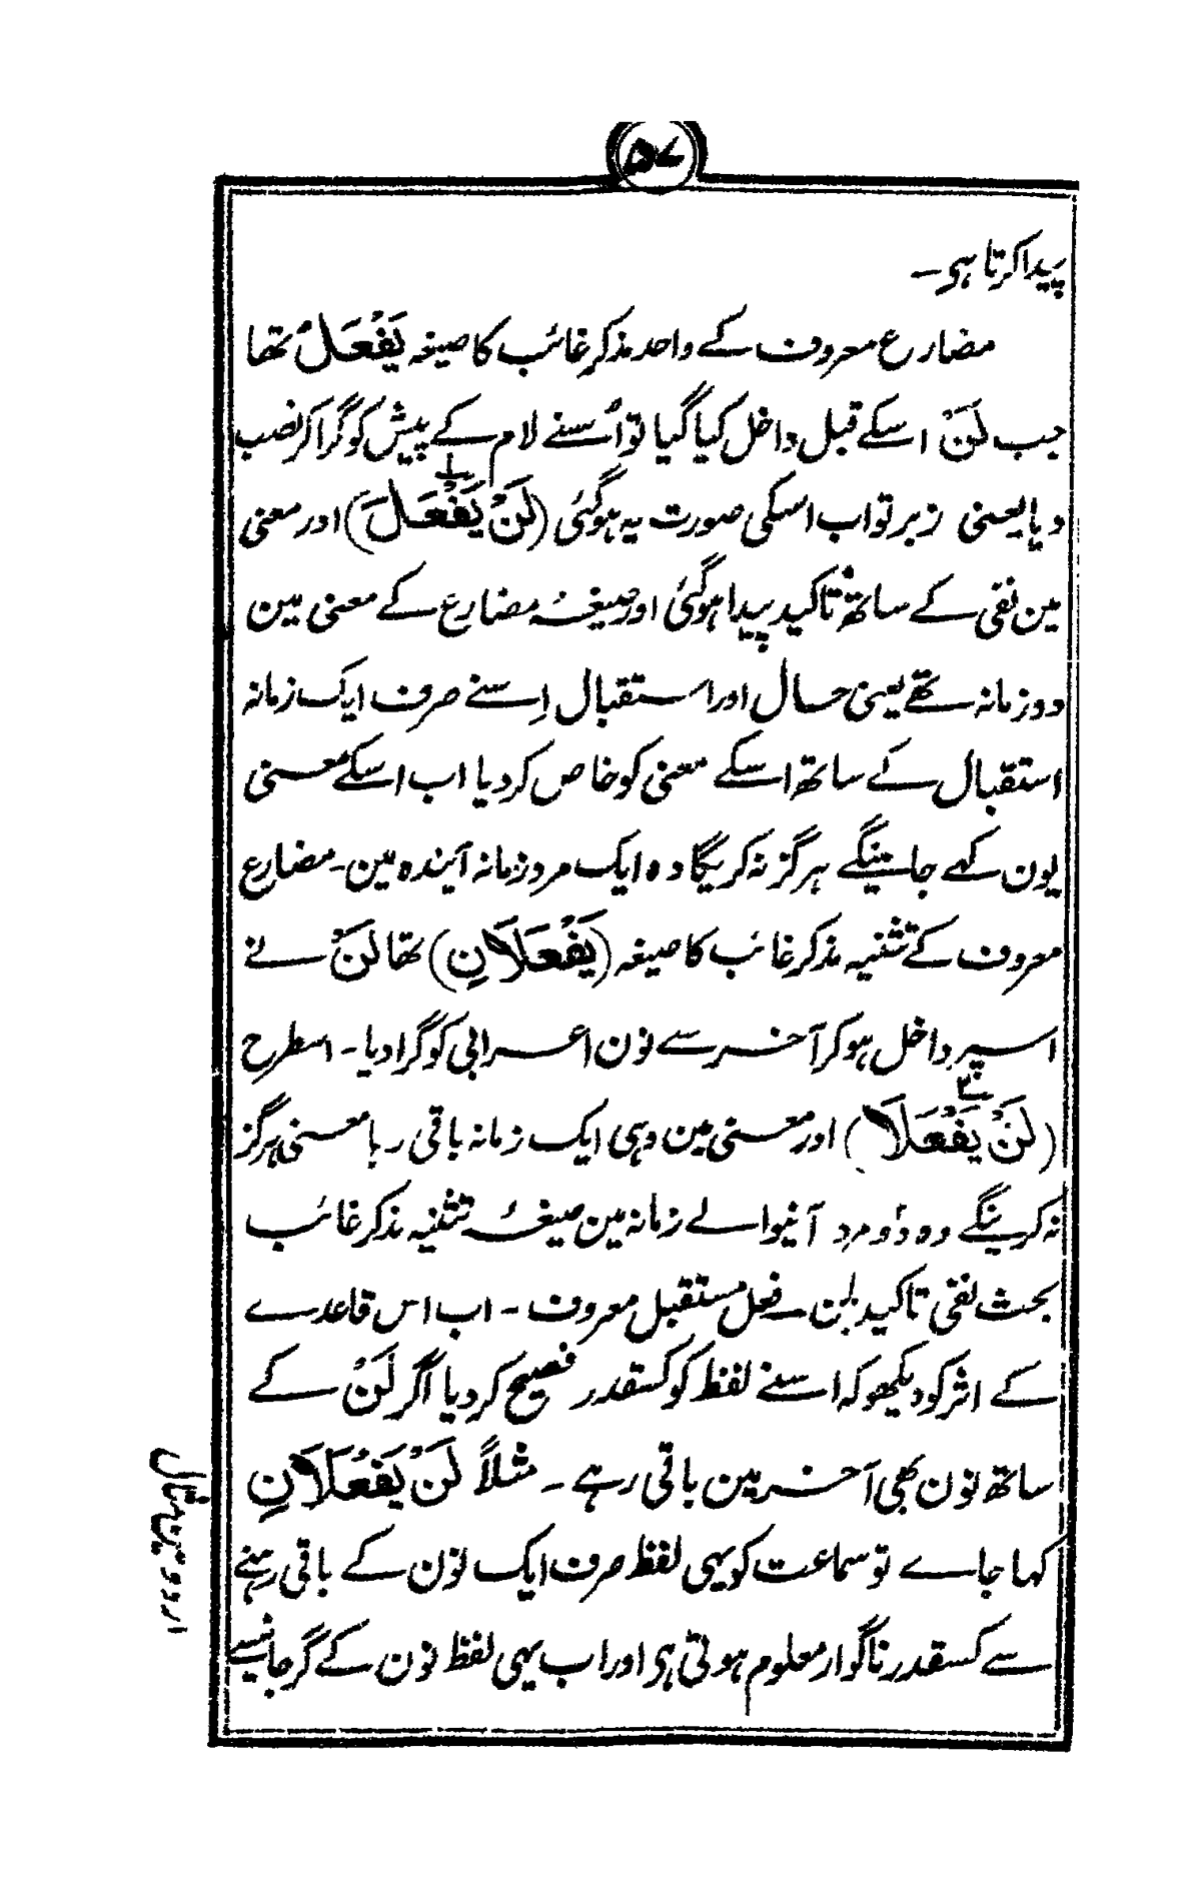 ۵۷
پیدا کرتا ہی۔
مضارع معروف کے واحد مذکر غائب کا صیغہ یَفْعَلُ تھا
جب لَنْ اسکے قبل داخل کیا گیا تو اُسنے لام کے پیش کو گرا کر نصب
دیا یعنی زبر تو اب اسکی صورت یہ ہوگئی (لَنْ یَفْعَلَ) اور معنی
مین نفی کے ساتھ تاکید پیدا ہوگئی اور صیغۂ مضارع کے معنی مین
دو زمانہ تھے یعنی حال اور استقبال اِسنے صرف ایک زمانہ
استقبال کے ساتھ اسکے معنی کو خاص کر دیا اب اسکے معنی
یون کہے جائینگے ہرگز نہ کریگا وہ ایک مرد زمانہ آیندہ مین۔ مضارع
معروف کے تثنیہ مذکر غائب کا صیغہ (یَفْعَلَانِ) تھا لَنْ نے
اسپر داخل ہوکر آخر سے نون اعرابی کو گرا دیا۔ اسطرح
(لَنْ یَفْعَلَا) اور معنی مین وہی ایک زمانہ باقی رہا معنی ہرگز
نہ کرینگے وہ دو مرد آنیوالے زمانہ مین صیغۂ تثنیہ مذکر غائب
بحث نفی تاکید بلن فعل مستقبل معروف۔ اب اس قاعدے
کے اثر کو دیکھو کہ اسنے لفظ کو کسقدر فصیح کر دیا اگر لَنْ کے
ساتھ نون بھی آخر مین باقی رہے۔ مثلاً لَنْ یَفْعَلَانِ
کہا جاے تو سماعت کو یہی لفظ صرف ایک نون کے باقی رہنے
سے کسقدر ناگوار معلوم ہوتی ہی اور اب یہی لفظ نون کے گر جانیسے